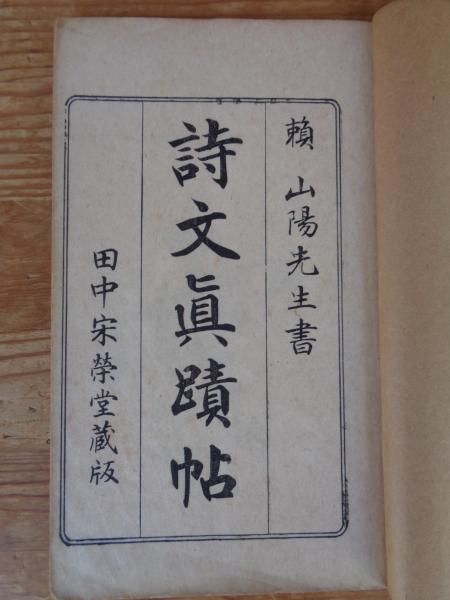 賴 山陽先生書
詩文眞蹟帖
田中宋榮堂蔵版